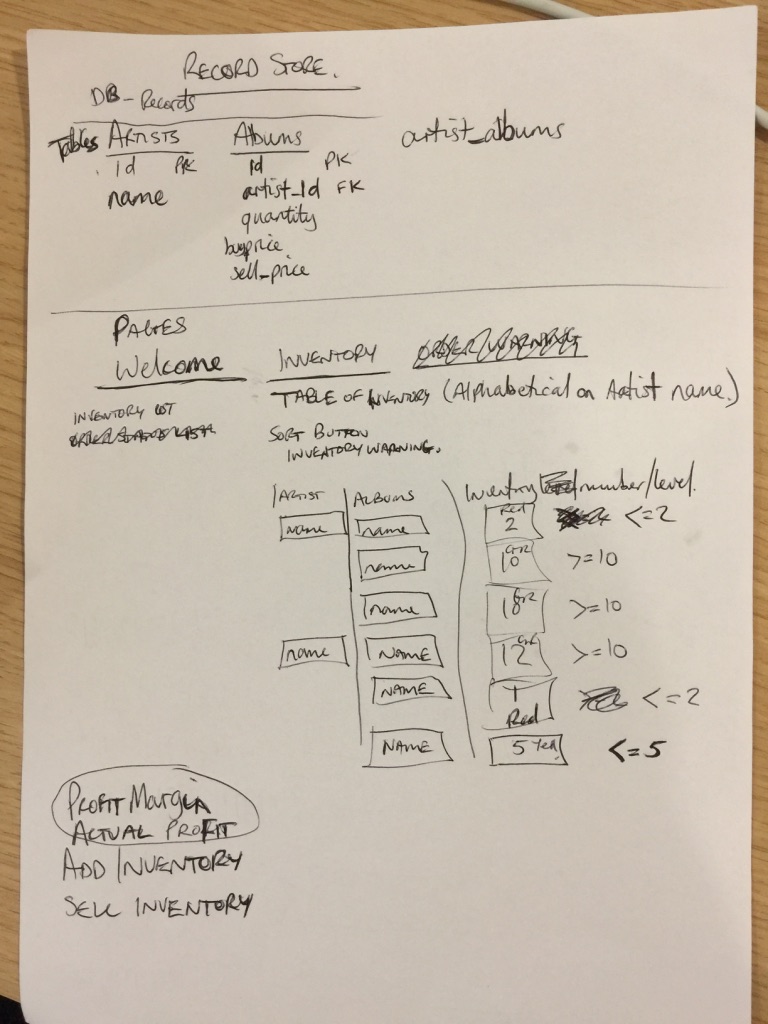 RECORD STORE.
DB - Records
Tables ARTISTS Albums artist_albums
id PK id PK
name artist_id FK
quantity
buyprice
sell_price
PAGES
Welcome INVENTORY
TABLE OF INVENTORY (Alphabetical on Artist name.)
INVENTORY
SORT BUTTON
INVENTORY WARNING.
ARTIST ALBUMS Inventory number/level.
name name Red 2 <=2
name 10 >=10
name 18 >=10
name NAME 12 >=10
NAME 1 Red <=2
NAME 5 Yel <=5
PROFIT Margin
ACTUAL PROFIT
ADD INVENTORY
SELL INVENTORY